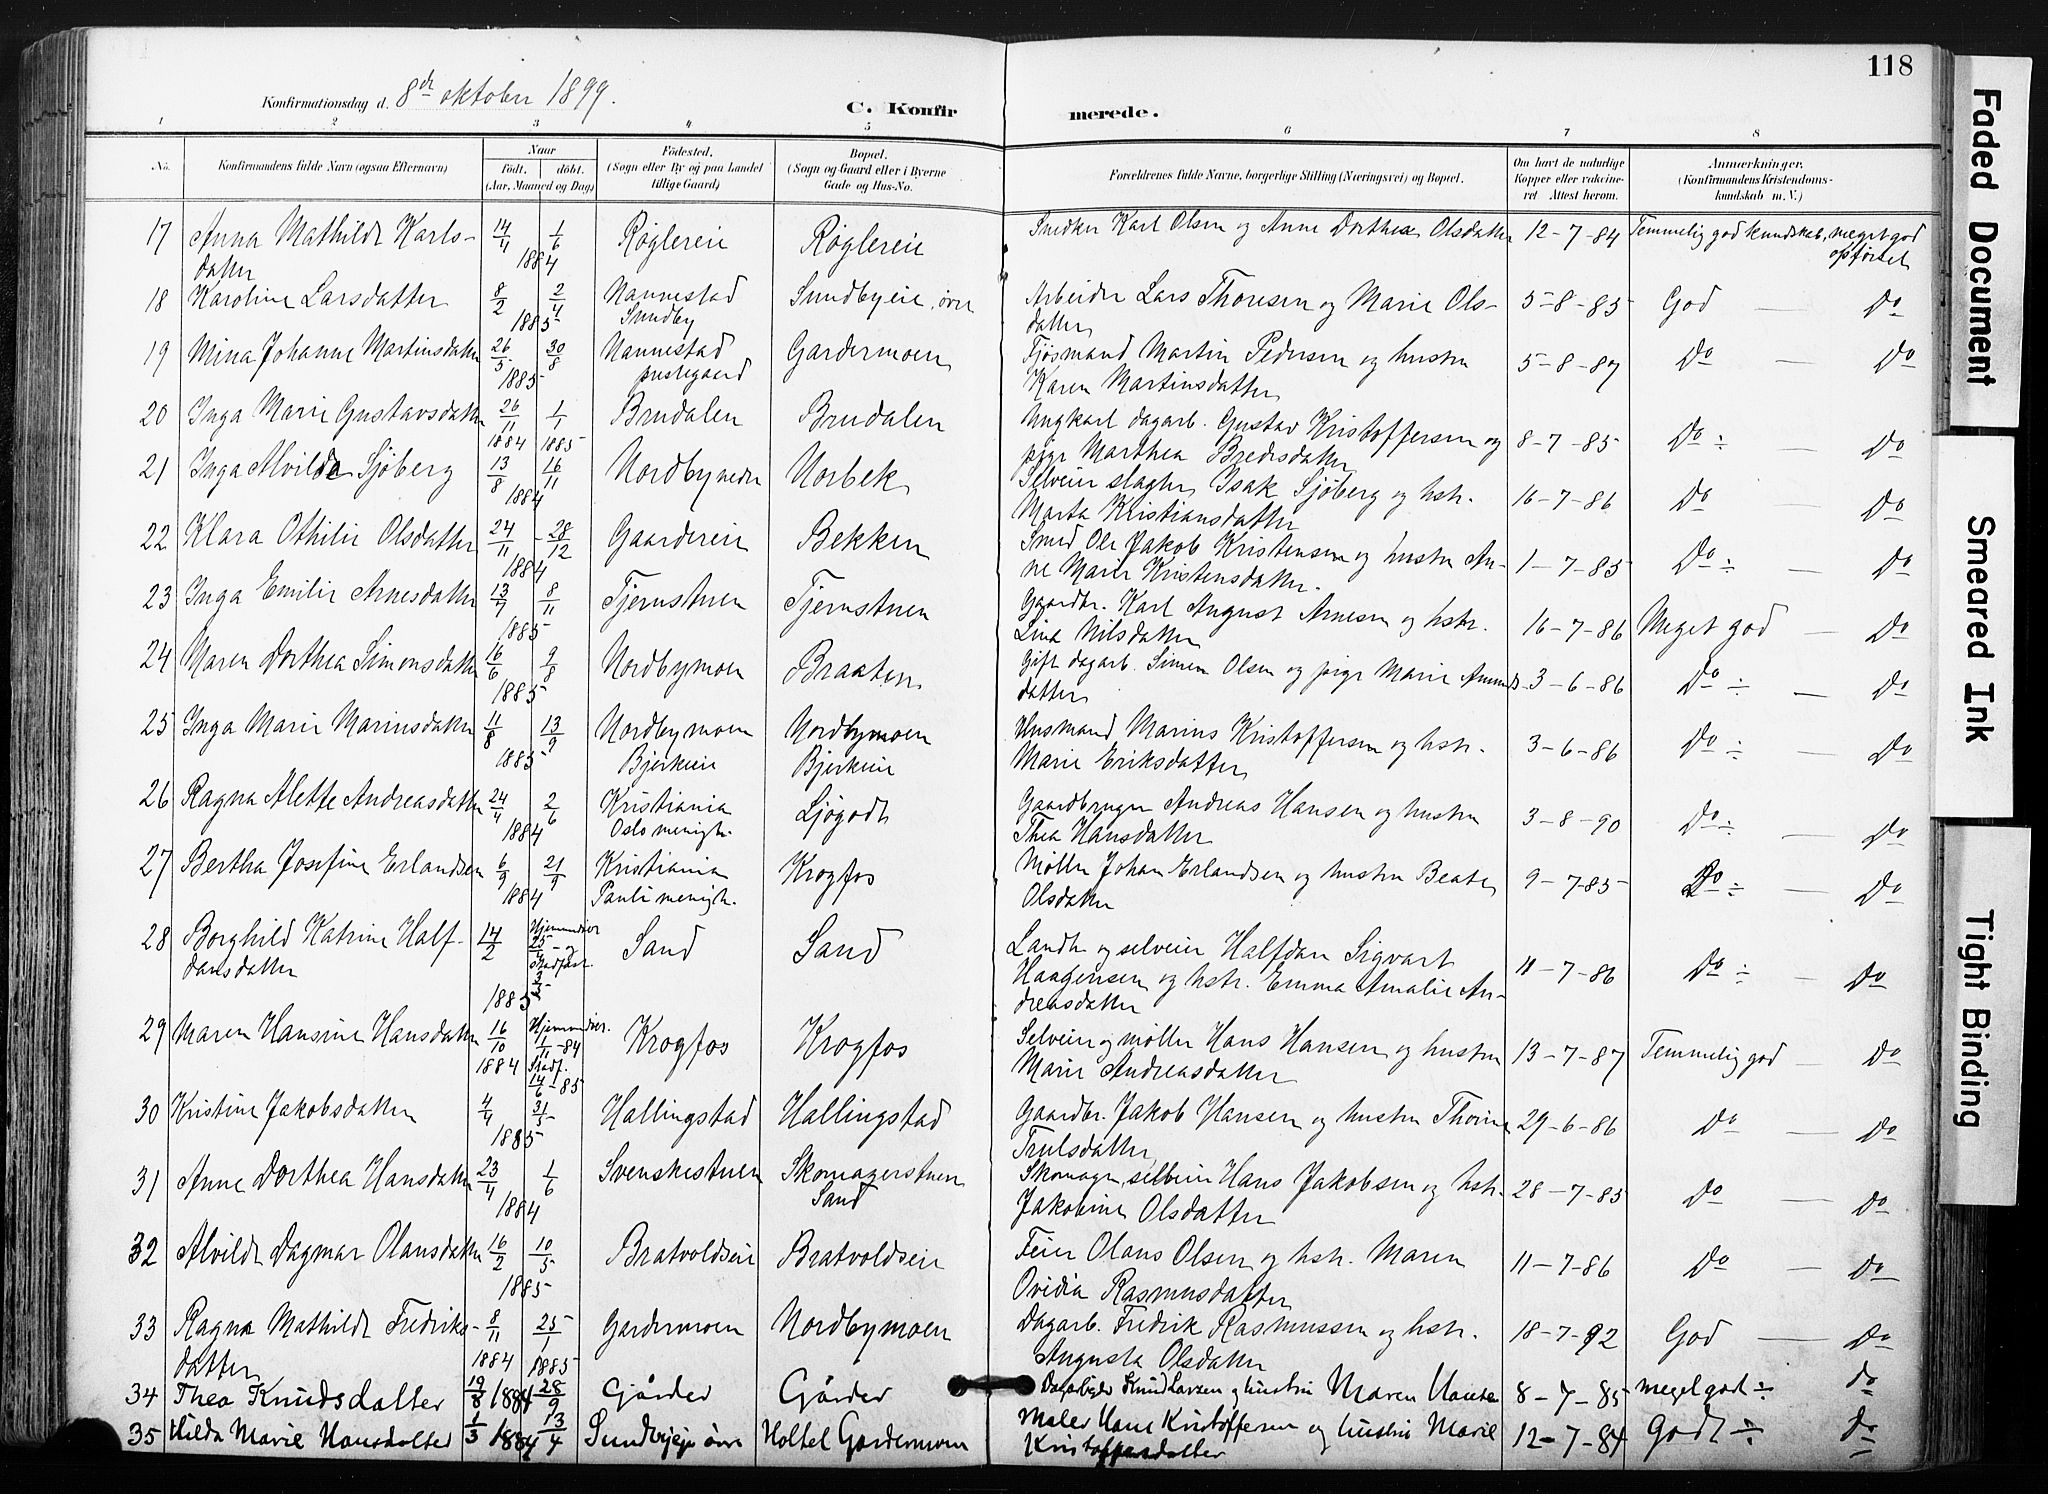 118
Konfirmationsdag d. 8de oktober 1899.
C. Konfirmerede.
1 2 3 4 5 6 7 8
No. Konfirmandens fulde Navn (ogsaa Efternavn) Naar født. døbt. (Aar, Maaned og Dag) Fødested. (Sogn eller By og paa Landet tillige Gaard) Bopæl. (Sogn og Gaard eller i Byerne Gade og Hus-No. Forældrenes fulde Navne, borgerlige Stilling (Næringsvei) og Bopæl. Om havt de naturlige Kopper eller vakcineret Attest herom. Anmærkninger. (Konfirmandens Kristendomskundskab m. V.)
17 Anna Mathilde Karls- 14/4 1/6 Røglereie Røglereie Snedker Karl Olsen og Anne Dorthea Olsdatter 12-7-84 Temmelig god kundskab, meget god
datter 1884 opførsel
18 Karoline Larsdatter 8/2 2/4 Nannestad Sundbyeie, øvre Arbeider Lars Thoresen og Marie Ols- 5-8-85 God — Do
1885 Sundby datter
19 Mina Johanne Martinsdatter 26/5 30/8 Nannestad Gardermoen Fjøsmand Martin Pedersen og hustru 5-8-87 Do — Do
1885 prestegaard Karen Martinsdatter
20 Inga Marie Gustavsdatter 26/11 1/1 Brudalen Brudalen Ungkarl dagarb. Gustav Kristoffersen og 8-7-85 Do ÷ — Do
1884 1885 pige Marthea Bredesdatter
21 Inga Alvilde Sjøberg 13/8 16/11 Nordby nedre Norbek Selveier slagter Isak Sjøberg og hstr. 16-7-86 Do — Do
1884 Marta Kristiansdatter
22 Klara Othilie Olsdatter 24/11 - 28/12 Gaardereie Bekken Smed Ole Jakob Kristensen og hustru An- 1-7-85 Do ÷ — Do
1884 ne Marie Kristensdatter.
23 Inga Emilie Arnesdatter 13/7 8/11 Tjernstuen Tjernstuen Gaardbr. Karl August Arnesen og hstr. 16-7-86 Meget god — Do
1885 Lina Nilsdatter
24 Maren Dorthea Simonsdatter 16/6 9/8 Nordbymoen Braaten Gift dagarb. Simen Olsen og pige Marie Amunds- 3-6-86 Do ÷ — Do
1885 datter
25 Inga Marie Marinsdatter 11/8 13/9 Nordbymoen Nordbymoen Husmand Marius Kristoffersen og hstr. 3-6-86 Do ÷ — Do
1885 Bjerkeie Bjerkeie Marie Eriksdatter
26 Ragna Alette Andreasdatter 24/4 2/6 Kristiania Ljøgodt Gaardbruger Andreas Hansen og hustru 3-8-90 Do ÷ — Do
1884 Oslo menigh. Thea Hansdatter
27 Bertha Josefine Erlandsen 6/9 21/9 Kristiania Krogfos Møller Johan Erlandsen og hustru Beate 9-7-85 Do ÷ — Do
1884 Pauli menigh. Olsdatter
28 Borghild Katrine Half- 14/2 Hjemmedøbt Sand Sand Landh. og selveier Halfdan Sigvart 11-7-86 Do ÷ — Do
dansdatter Haagensen og hstr. Emma Amalie An-
1885 dreasdatter
29 Maren Hansine Hansdatter 16/10 1/11-84 Krogfos Krogfos Selveier og møller Hans Hansen og hustru 13-7-87 Temmelig god — Do
1884 Stadf. 14/6-85 Marie Andreasdatter
30 Kristine Jakobsdatter 4/4 31/5 Hallingstad Hallingstad Gaardbr. Jakob Hansen og hustru Thorine 29-6-86 Do — Do
1885 Trulsdatter
31 Anne Dorthea Hansdatter 23/4 1/6 Svenskestuen Skomagerstuen Skomager, selveier Hans Jakobsen og hstr. 28-7-85 Do — Do
1884 Sand Jakobine Olsdatter
32 Alvilde Dagmar Olausdatter 16/2 10/5 Bratvoldseie Bratvoldseie Feier Olaus Olsen og hstr. Maren 11-7-86 Do — Do
1885 Ovidia Rasmusdatter
33 Ragna Mathilde Fredriks- 8/11 25/1 Gardermoen Nordbymoen Dagarb. Fredrik Rasmussen og hstr. 18-7-92 God — Do
datter 1884 1885 Augusta Olsdatter
34 Thea Knudsdatter 19/8 1884 28/9 Gjårder Gjårder Dagarbeider Knud Larsen og hustru Maren 8-7-85 meget god ÷ Do
35 Hilda Marie Hansdatter 1/3 1884 13/4 Sundbyeje øvre Holtet Gardermoen Maler Hans Kristoffersen og hustru Marie 12-7-84 Godt ÷ Do
Kristoffersdatter
Faded Document
Smeared Ink
Tight Binding